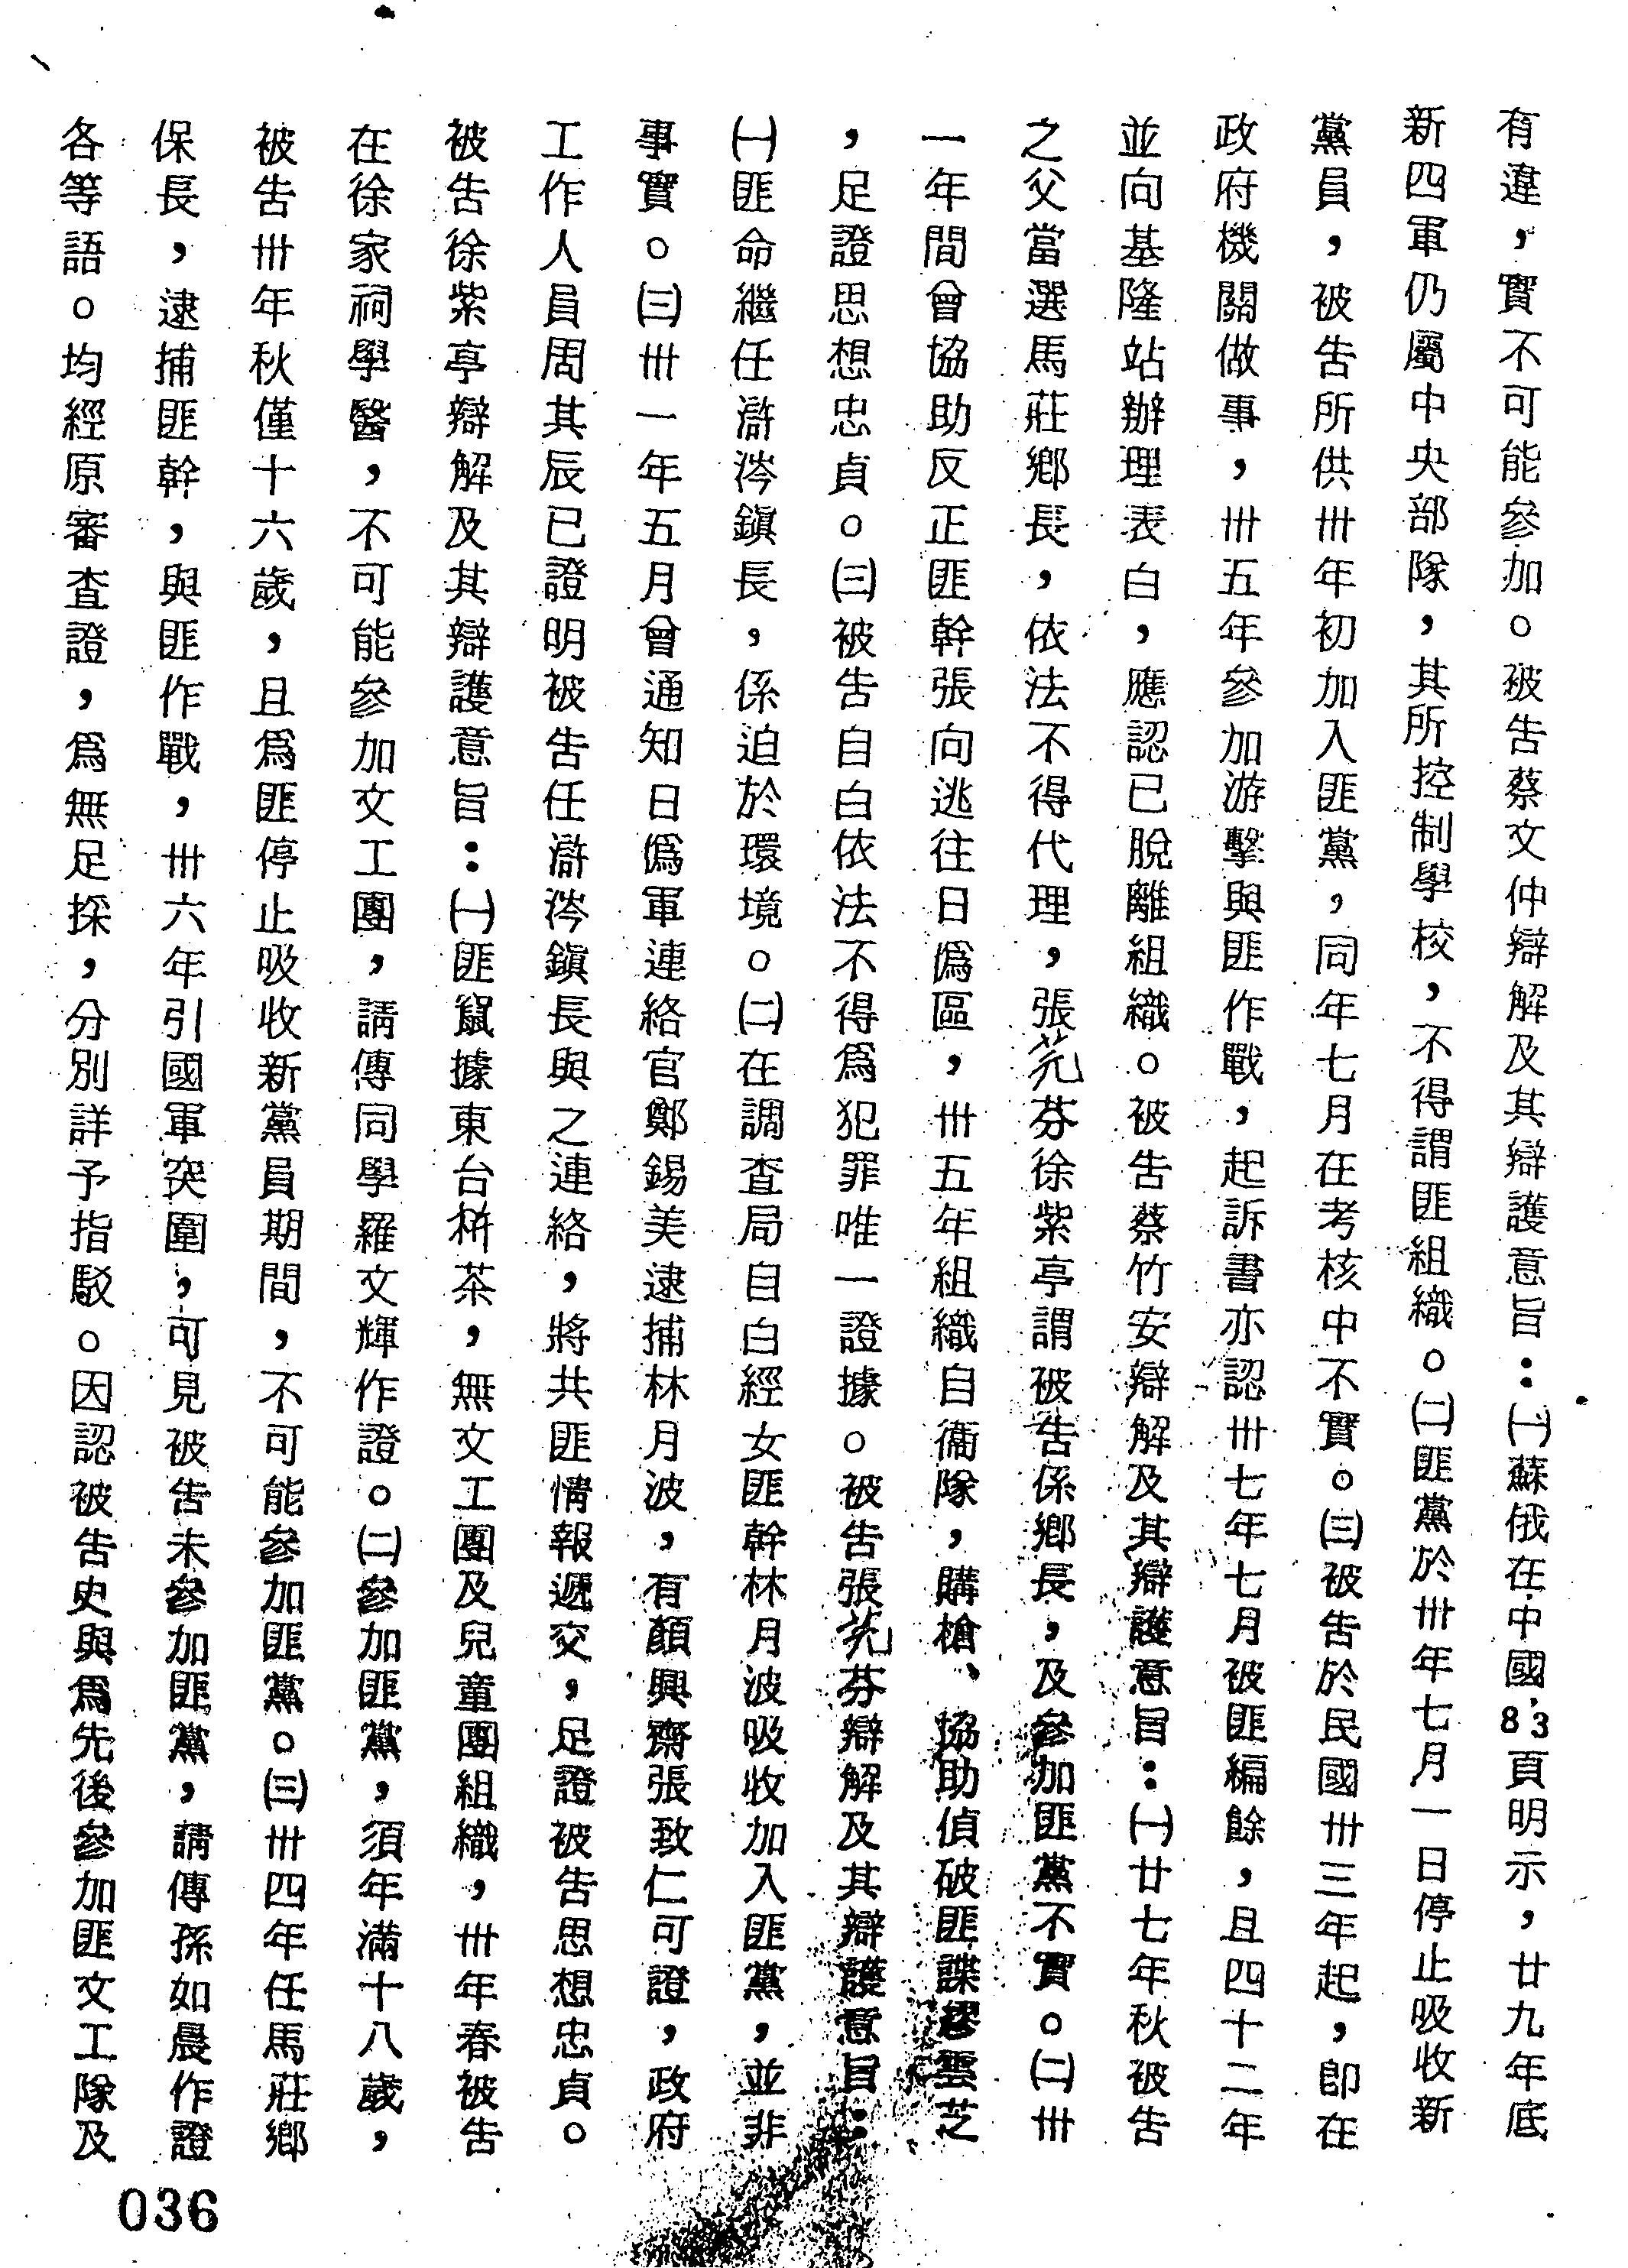 有違，實不可能參加。被告蔡文仲辯解及其辯護意旨：㈠蘇俄在中國83頁明示，廿九年底
新四軍仍屬中央部隊，其所控制學校，不得謂匪組織。㈡匪黨於卅年七月一日停止吸收新
黨員，被告所供卅年初加入匪黨，同年七月在考核中不實。㈢被告於民國卅三年起，卽在
政府機關做事，卅五年參加游擊與匪作戰，起訴書亦認卅七年七月被匪編餘，且四十二年
並向基隆站辦理表白，應認已脫離組織。被告蔡竹安辯解及其辯護意旨：㈠廿七年秋被告
之父當選馬莊鄉長，依法不得代理，張芫芬徐紫亭謂被告係鄉長，及參加匪黨不實。㈡卅
一年間曾協助反正匪幹張向逃往日僞區，卅五年組織自衞隊，購槍、協助偵破匪諜繆雲芝
，足證思想忠貞。㈢被告自白依法不得爲犯罪唯一證據。被告張芫芬辯解及其辯護意旨：
㈠匪命繼任滸涔鎭長，係迫於環境。㈡在調查局自白經女匪幹林月波吸收加入匪黨，並非
事實。㈢卅一年五月曾通知日僞軍連絡官鄭錫美逮捕林月波，有顏興齋張致仁可證，政府
工作人員周其辰已證明被告任滸涔鎭長與之連絡，將共匪情報遞交，足證被告思想忠貞。
被告徐紫亭辯解及其辯護意旨：㈠匪竄據東台栟茶，無文工團及兒童團組織，卅年春被告
在徐家祠學醫，不可能參加文工團，請傳同學羅文輝作證。㈡參加匪黨，須年滿十八歲，
被告卅年秋僅十六歲，且爲匪停止吸收新黨員期間，不可能參加匪黨。㈢卅四年任馬莊鄉
保長，逮捕匪幹，與匪作戰，卅六年引國軍突圍，可見被告未參加匪黨，請傳孫如晨作證
各等語。均經原審查證，爲無足採，分別詳予指駁。因認被告史與爲先後參加匪文工隊及
036